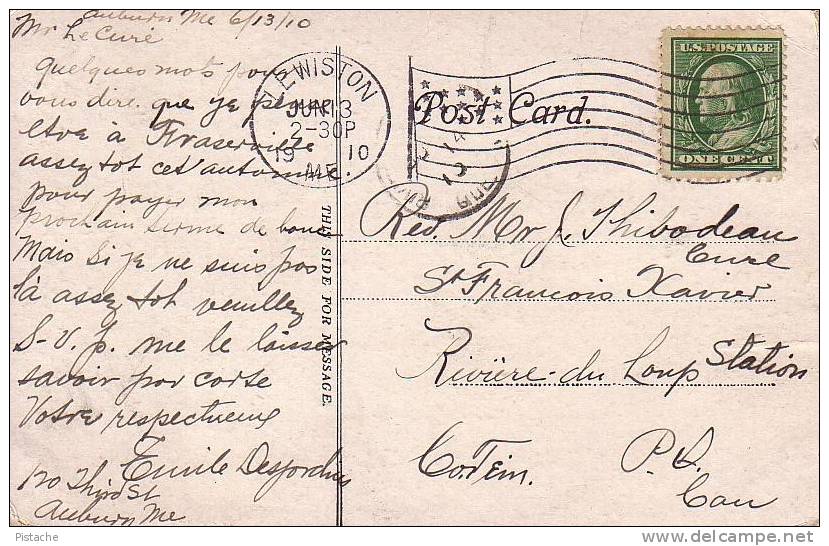 Auburn Me 6/13/10
Mr Le Curé
quelques mots pour
vous dire que je pense
etre à Fraserville
assez tot cet automne.
pour payer mon
prochain terme de banc
Mais si je ne suis pas
là assez tot veuillez
S-V.p. me le laisser
savoir par carte
Votre respectueux
Emile Desjardins
120 Third St
Auburn Me
THIS SIDE FOR MESSAGE.
LEWISTON
JUN 13
2-30P
19 10
ME.
Post Card.
U.S. POSTAGE
ONE CENT
Rev. Mr J. Thibodeau
Cure
St Francois Xavier
Rivière-du Loup Station
Co. Tem. P.Q.
Can
Pistache
delcampe.net